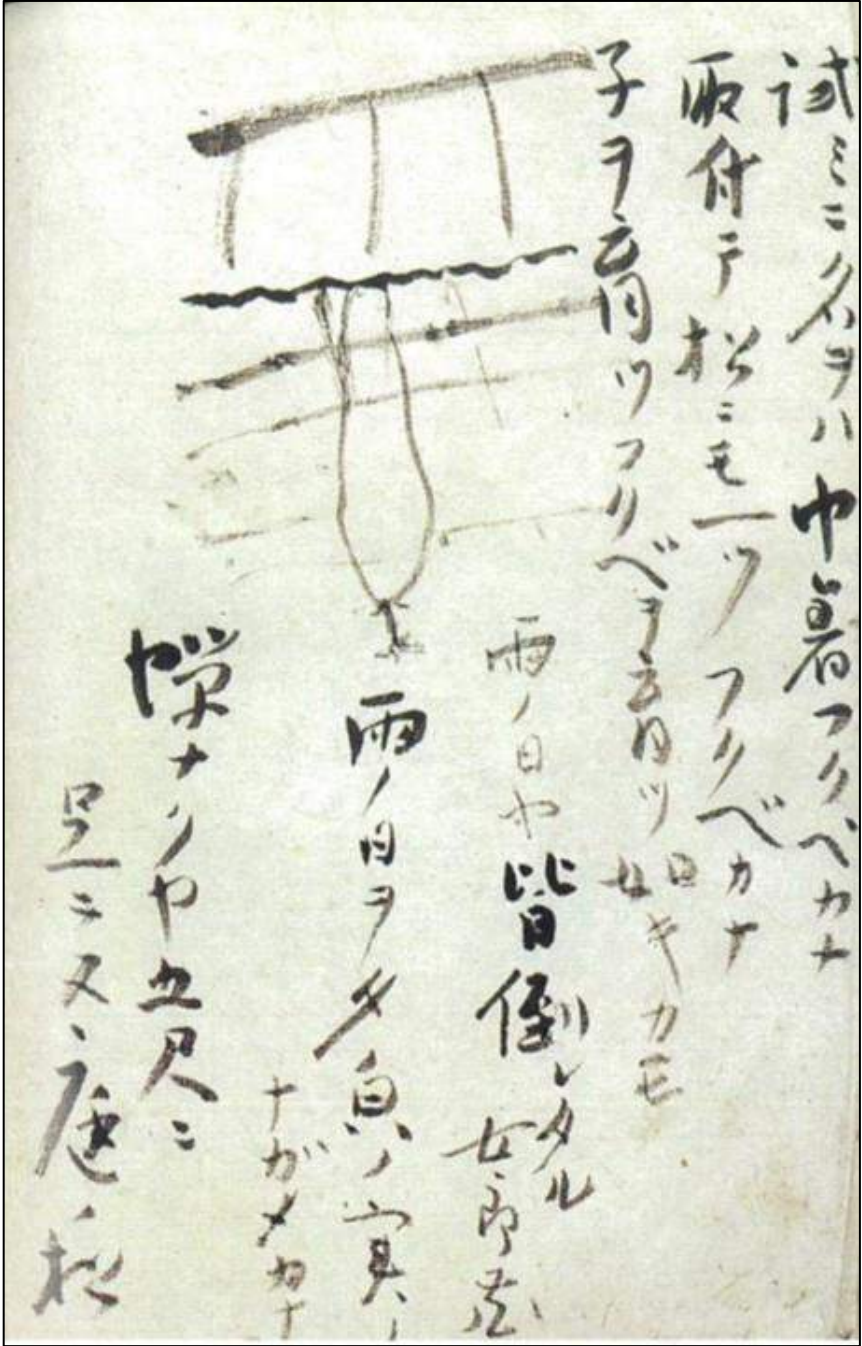 試ミニ名ヲハ巾着フクベカナ
取付テ松ニモ一ツフクベカナ
子ヲ育ツフクベヲ育ツ如キカモ
雨ノ日ヤ皆倒レタル女郎花
雨ノ日ヲ夕皃ノ実ノ
ナガメカナ
蝉ナクヤ五尺ニ
足ラヌ庭ノ松